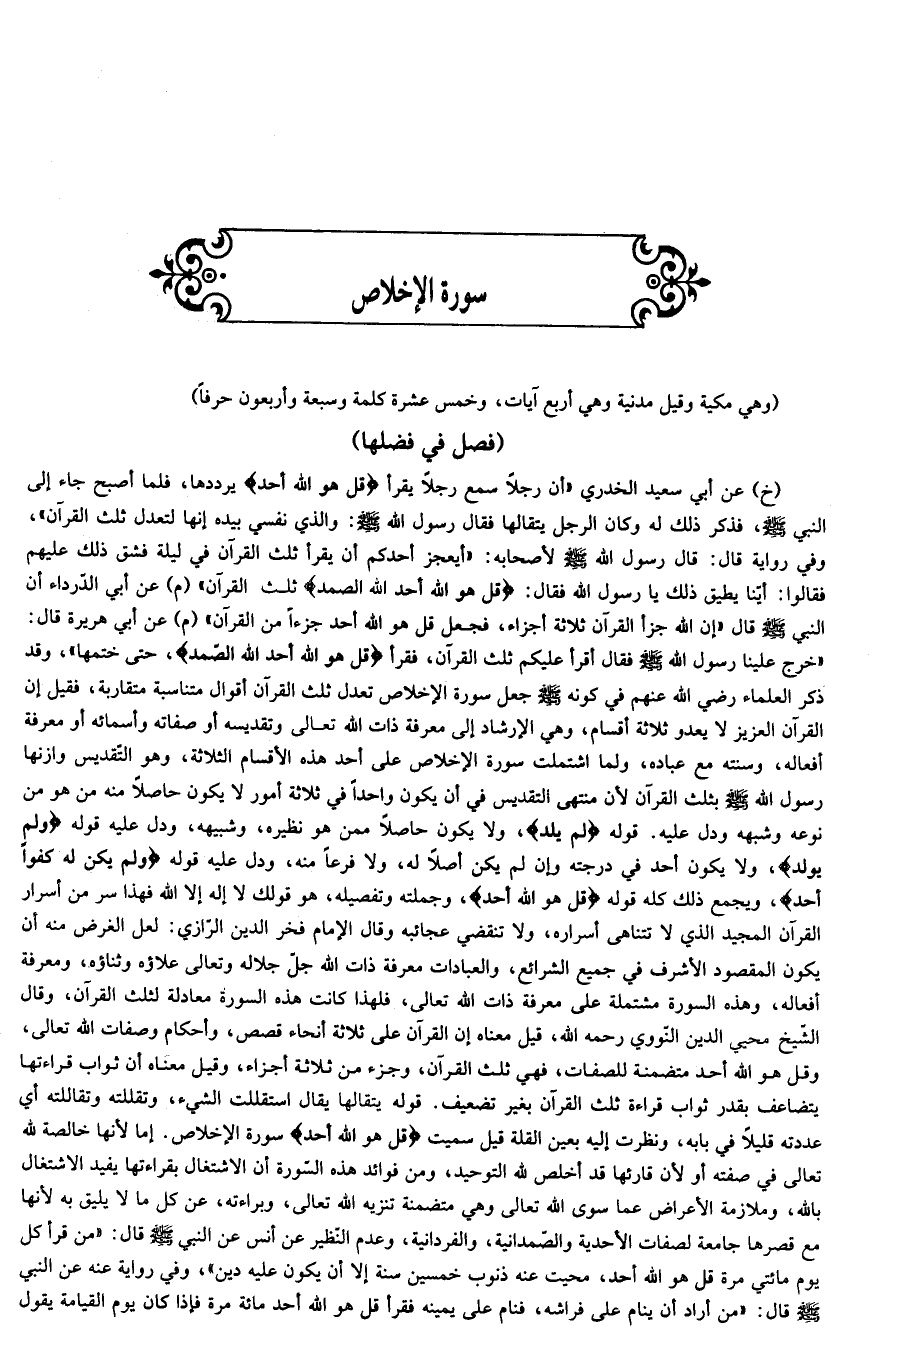 سورة الإخلاص
(وهي مكية وقيل مدنية وهي أربع آيات، وخمس عشرة كلمة وسبعة وأربعون حرفاً)
(فصل في فضلها)
(خ) عن أبي سعيد الخدري «أن رجلاً سمع رجلاً يقرأ ﴿قل هو الله أحد﴾ يرددها، فلما أصبح جاء إلى
النبي ﷺ، فذكر ذلك له وكان الرجل يتقالها فقال رسول الله ﷺ: والذي نفسي بيده إنها لتعدل ثلث القرآن»،
وفي رواية قال: قال رسول الله ﷺ لأصحابه: «أيعجز أحدكم أن يقرأ ثلث القرآن في ليلة فشق ذلك عليهم
فقالوا: أيّنا يطيق ذلك يا رسول الله فقال: ﴿قل هو الله أحد الله الصمد﴾ ثلث القرآن» (م) عن أبي الدّرداء أن
النبي ﷺ قال «إن الله جزأ القرآن ثلاثة أجزاء، فجعل قل هو الله أحد جزءاً من القرآن» (م) عن أبي هريرة قال:
«خرج علينا رسول الله ﷺ فقال أقرأ عليكم ثلث القرآن، فقرأ ﴿قل هو الله أحد الله الصّمد﴾، حتى ختمها»، وقد
ذكر العلماء رضي الله عنهم في كونه ﷺ جعل سورة الإخلاص تعدل ثلث القرآن أقوال متناسبة متقاربة، فقيل إن
القرآن العزيز لا يعدو ثلاثة أقسام، وهي الإرشاد إلى معرفة ذات الله تعالى وتقديسه أو صفاته وأسمائه أو معرفة
أفعاله، وسنته مع عباده، ولما اشتملت سورة الإخلاص على أحد هذه الأقسام الثلاثة، وهو التّقديس وازنها
رسول الله ﷺ بثلث القرآن لأن منتهى التقديس في أن يكون واحداً في ثلاثة أمور لا يكون حاصلاً منه من هو من
نوعه وشبهه ودل عليه. قوله ﴿لم يلد﴾، ولا يكون حاصلاً ممن هو نظيره، وشبيهه، ودل عليه قوله ﴿ولم
يولد﴾، ولا يكون أحد في درجته وإن لم يكن أصلاً له، ولا فرعاً منه، ودل عليه قوله ﴿ولم يكن له كفواً
أحد﴾، ويجمع ذلك كله قوله ﴿قل هو الله أحد﴾، وجملته وتفصيله، هو قولك لا إله إلا الله فهذا سر من أسرار
القرآن المجيد الذي لا تتناهى أسراره، ولا تنقضي عجائبه وقال الإمام فخر الدين الرّازي: لعل الغرض منه أن
يكون المقصود الأشرف في جميع الشرائع، والعبادات معرفة ذات الله جلّ جلاله وتعالى علاؤه وثناؤه، ومعرفة
أفعاله، وهذه السورة مشتملة على معرفة ذات الله تعالى، فلهذا كانت هذه السورة معادلة لثلث القرآن، وقال
الشّيخ محيي الدين النّووي رحمه الله، قيل معناه إن القرآن على ثلاثة أنحاء قصص، وأحكام وصفات الله تعالى،
وقل هو الله أحد متضمنة للصفات، فهي ثلث القرآن، وجزء من ثلاثة أجزاء، وقيل معناه أن ثواب قراءتها
يتضاعف بقدر ثواب قراءة ثلث القرآن بغير تضعيف. قوله يتقالها يقال استقللت الشيء، وتقللته وتقاللته أي
عددته قليلاً في بابه، ونظرت إليه بعين القلة قيل سميت ﴿قل هو الله أحد﴾ سورة الإخلاص. إما لأنها خالصة لله
تعالى في صفته أو لأن قارئها قد أخلص لله التوحيد، ومن فوائد هذه السّورة أن الاشتغال بقراءتها يفيد الاشتغال
بالله، وملازمة الأعراض عما سوى الله تعالى وهي متضمنة تنزيه الله تعالى، وبراءته، عن كل ما لا يليق به لأنها
مع قصرها جامعة لصفات الأحدية والصّمدانية، والفردانية، وعدم النّظير عن أنس عن النبي ﷺ قال: «من قرأ كل
يوم مائتي مرة قل هو الله أحد، محيت عنه ذنوب خمسين سنة إلا أن يكون عليه دين»، وفي رواية عنه عن النبي
ﷺ قال: «من أراد أن ينام على فراشه، فنام على يمينه فقرأ قل هو الله أحد مائة مرة فإذا كان يوم القيامة يقول